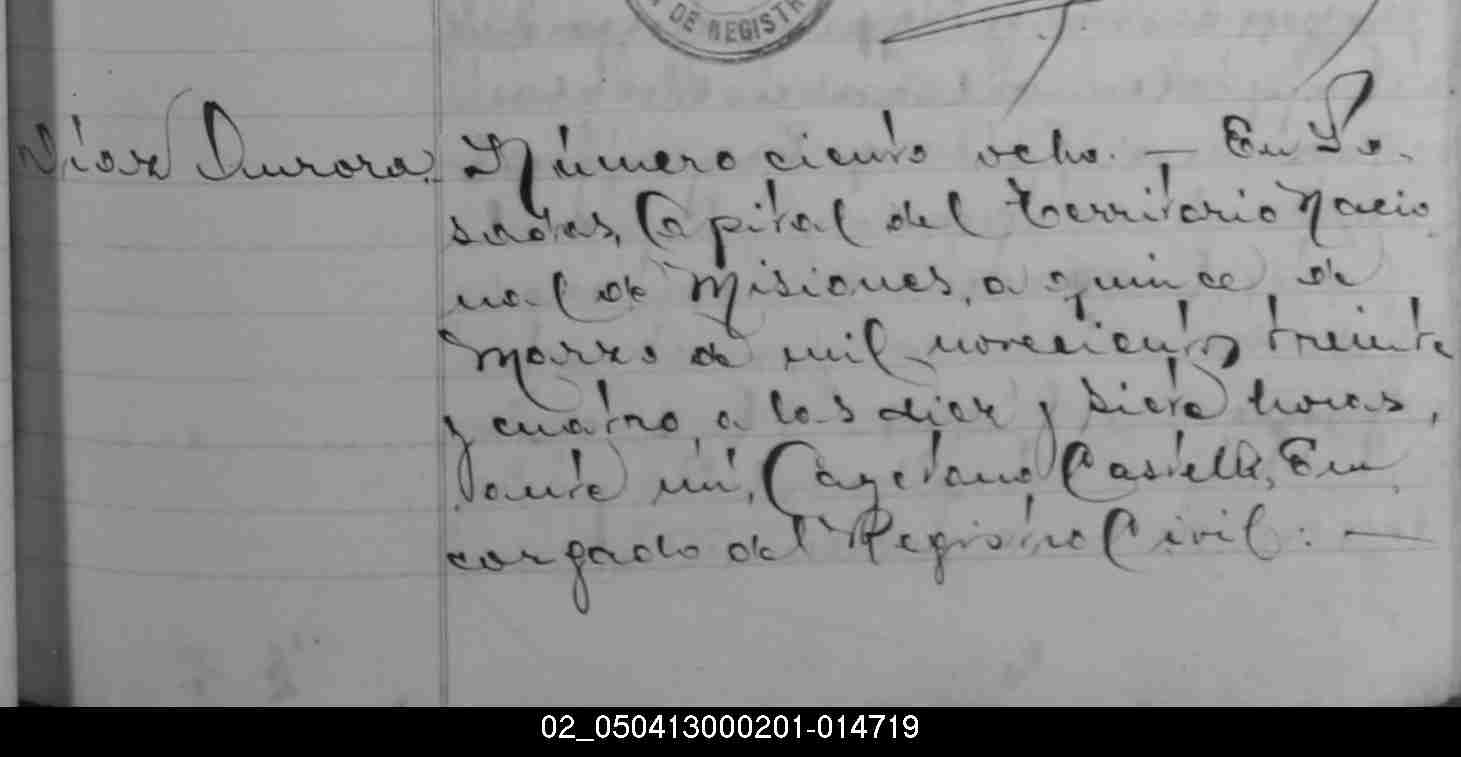 DE REGISTR
Diaz Aurora. Número ciento ocho. — En Po-
sadas, Capital del territorio Nacio
nal de Misiones, a quince de
Marzo de mil novecientos treinta
y cuatro, a las diez y siete horas,
ante mi, Cayetano Castelli, En
cargado del Registro Civil: —
02_050413000201-014719